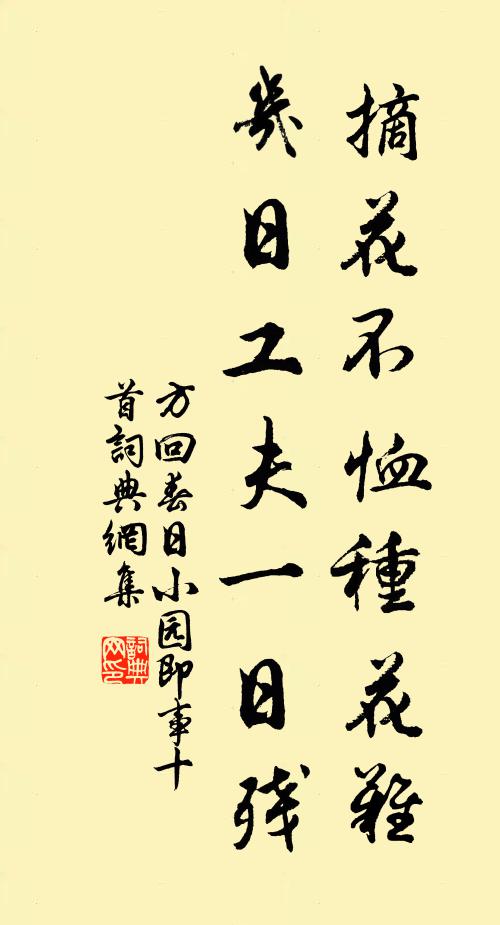 摘花不恤種花難
幾日工夫一日残
方回春日小园即事十
首詞典網集
詞典网印